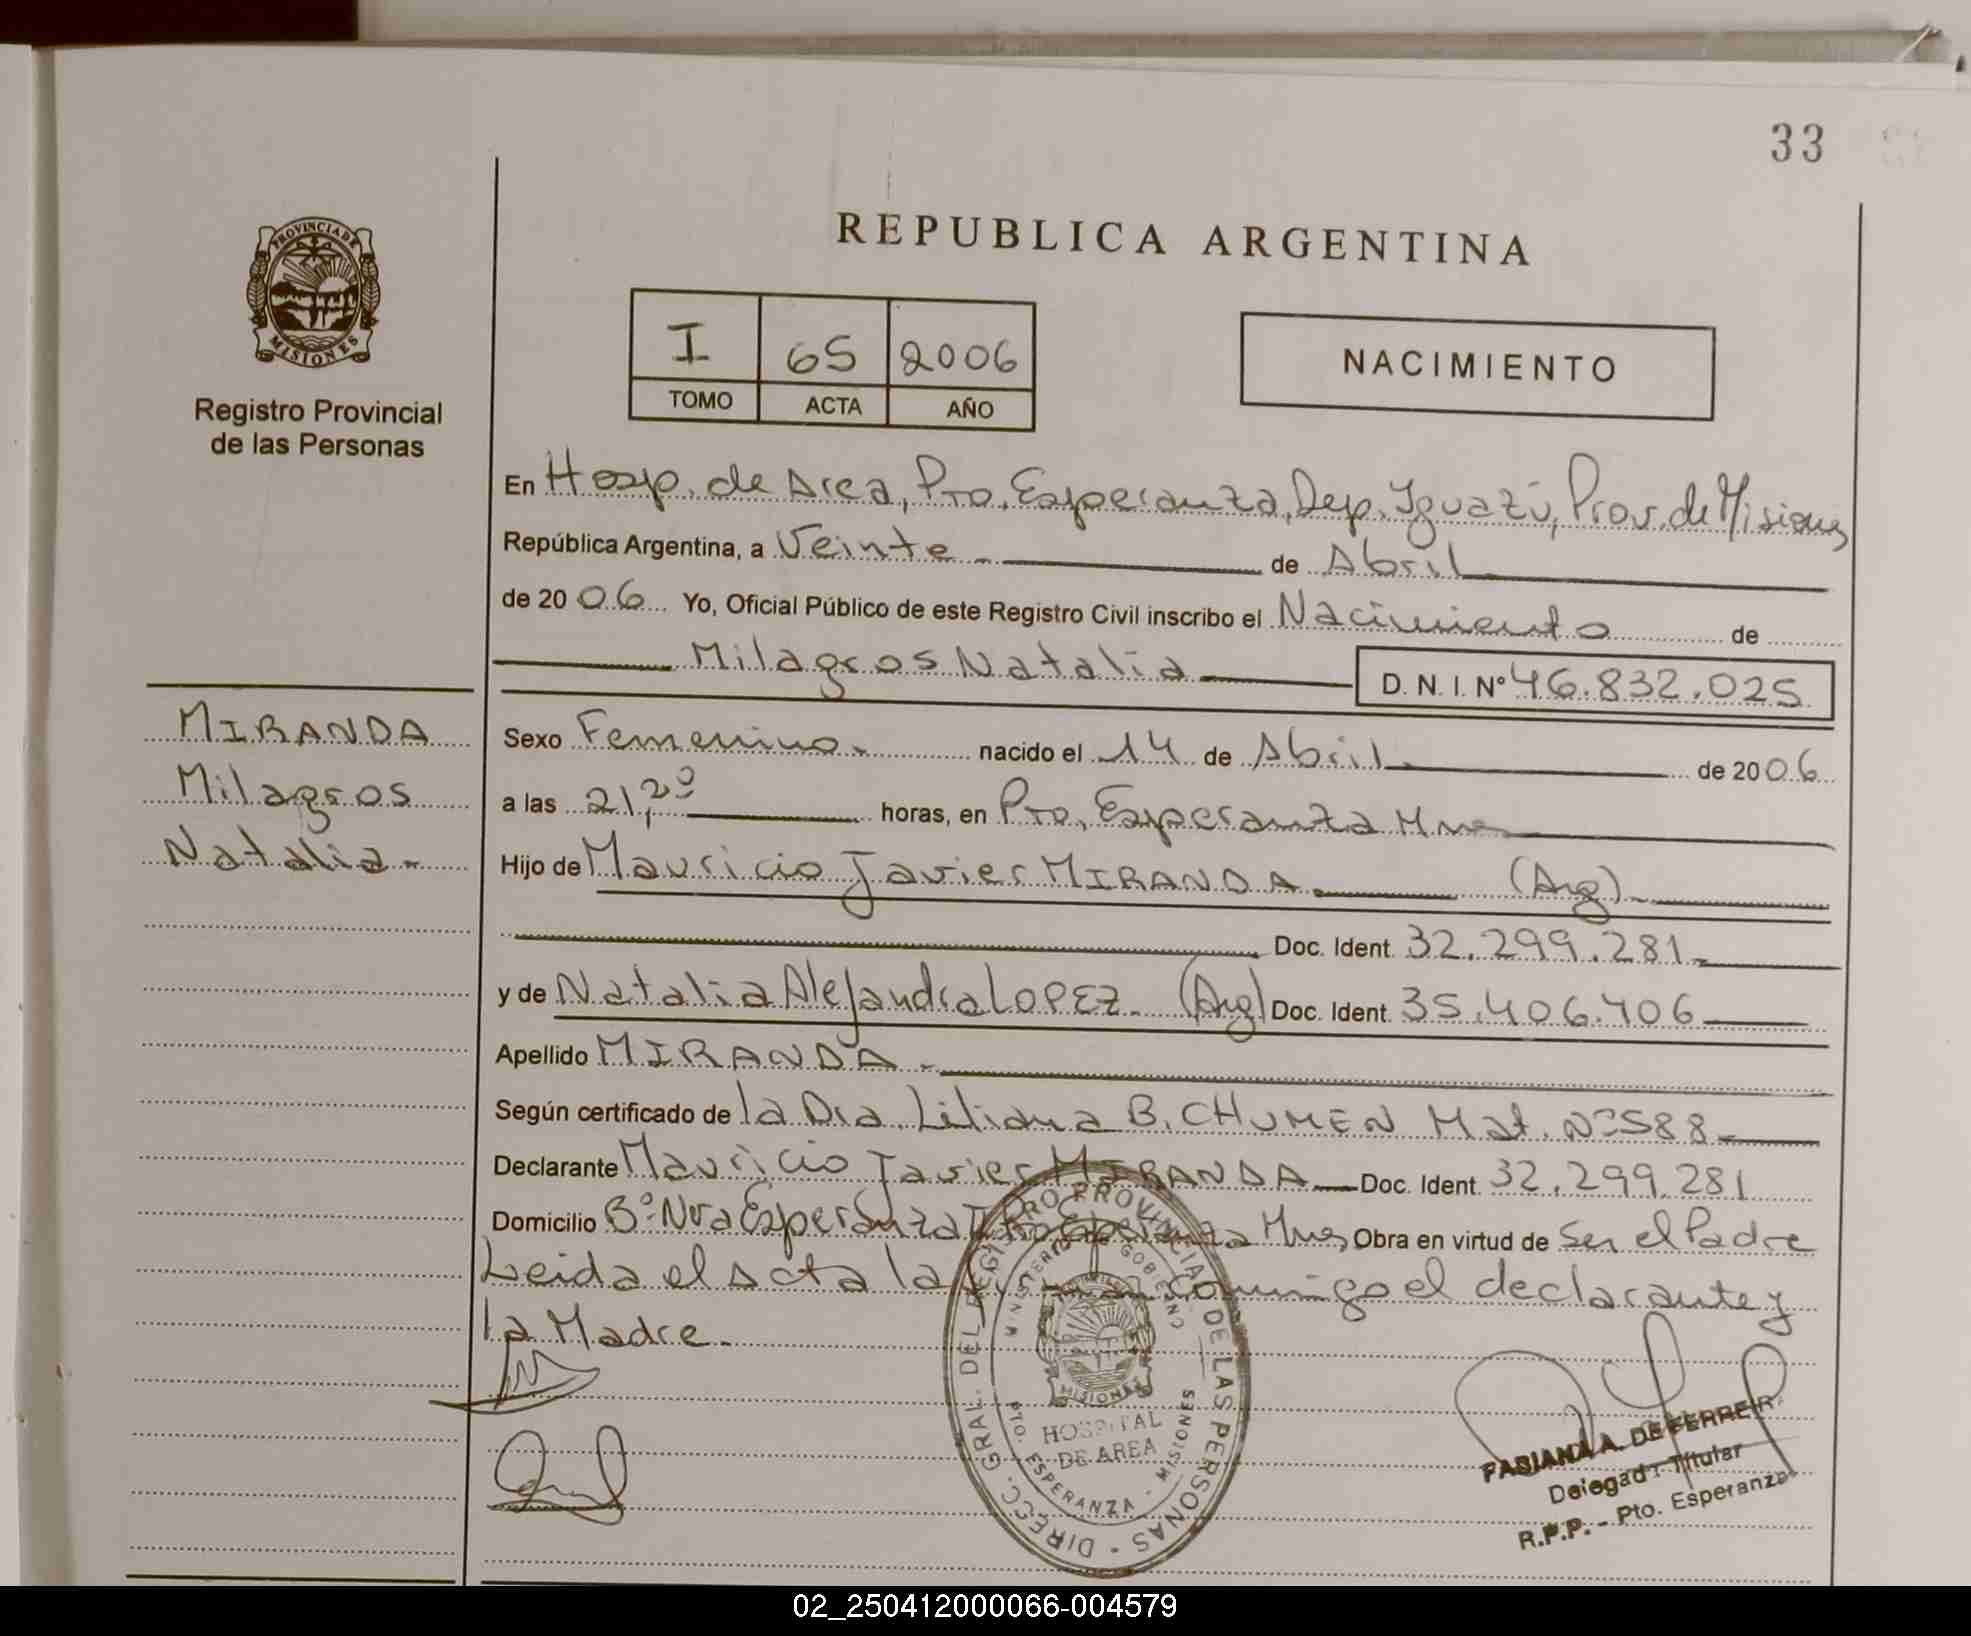 33
REPUBLICA ARGENTINA
PROVINCIA DE
MISIONES
Registro Provincial
de las Personas
I 65 2006
TOMO ACTA AÑO
NACIMIENTO
En Hosp. de Area, Pto. Esperanza, Dep. Iguazú, Prov. de Misiones
República Argentina, a Veinte de Abril
de 20 06 Yo, Oficial Público de este Registro Civil inscribo el Nacimiento de
Milagros Natalia D. N. I. Nº 46.832.025
MIRANDA
Milagros
Natalia
Sexo Femenino nacido el 14 de Abril de 20 06
a las 21,20 horas, en Pto. Esperanza Mnes
Hijo de Mauricio Javier MIRANDA (Arg)
Doc. Ident. 32.299.281
y de Natalia Alejandra LOPEZ (Arg) Doc. Ident. 35.406.406
Apellido MIRANDA
Según certificado de la Dra. Liliana B. CHUMEN Mat. Nº 588
Declarante Mauricio Javier MIRANDA Doc. Ident. 32.299.281
Domicilio Bº Nva Esperanza Pto Esperanza Mnes Obra en virtud de Ser el Padre
Leida el Acta la firman Comigo el declarante y
la Madre.
DIRECC. GRAL. DEL REGISTRO PROVINCIAL DE LAS PERSONAS
MINISTERIO DE GOBIERNO
MISIONES
HOSPITAL
DE AREA
PTO. ESPERANZA - MISIONES
FABIANA A. DE FERREIR
Delegada Titular
R.P.P. - Pto. Esperanza
02_250412000066-004579